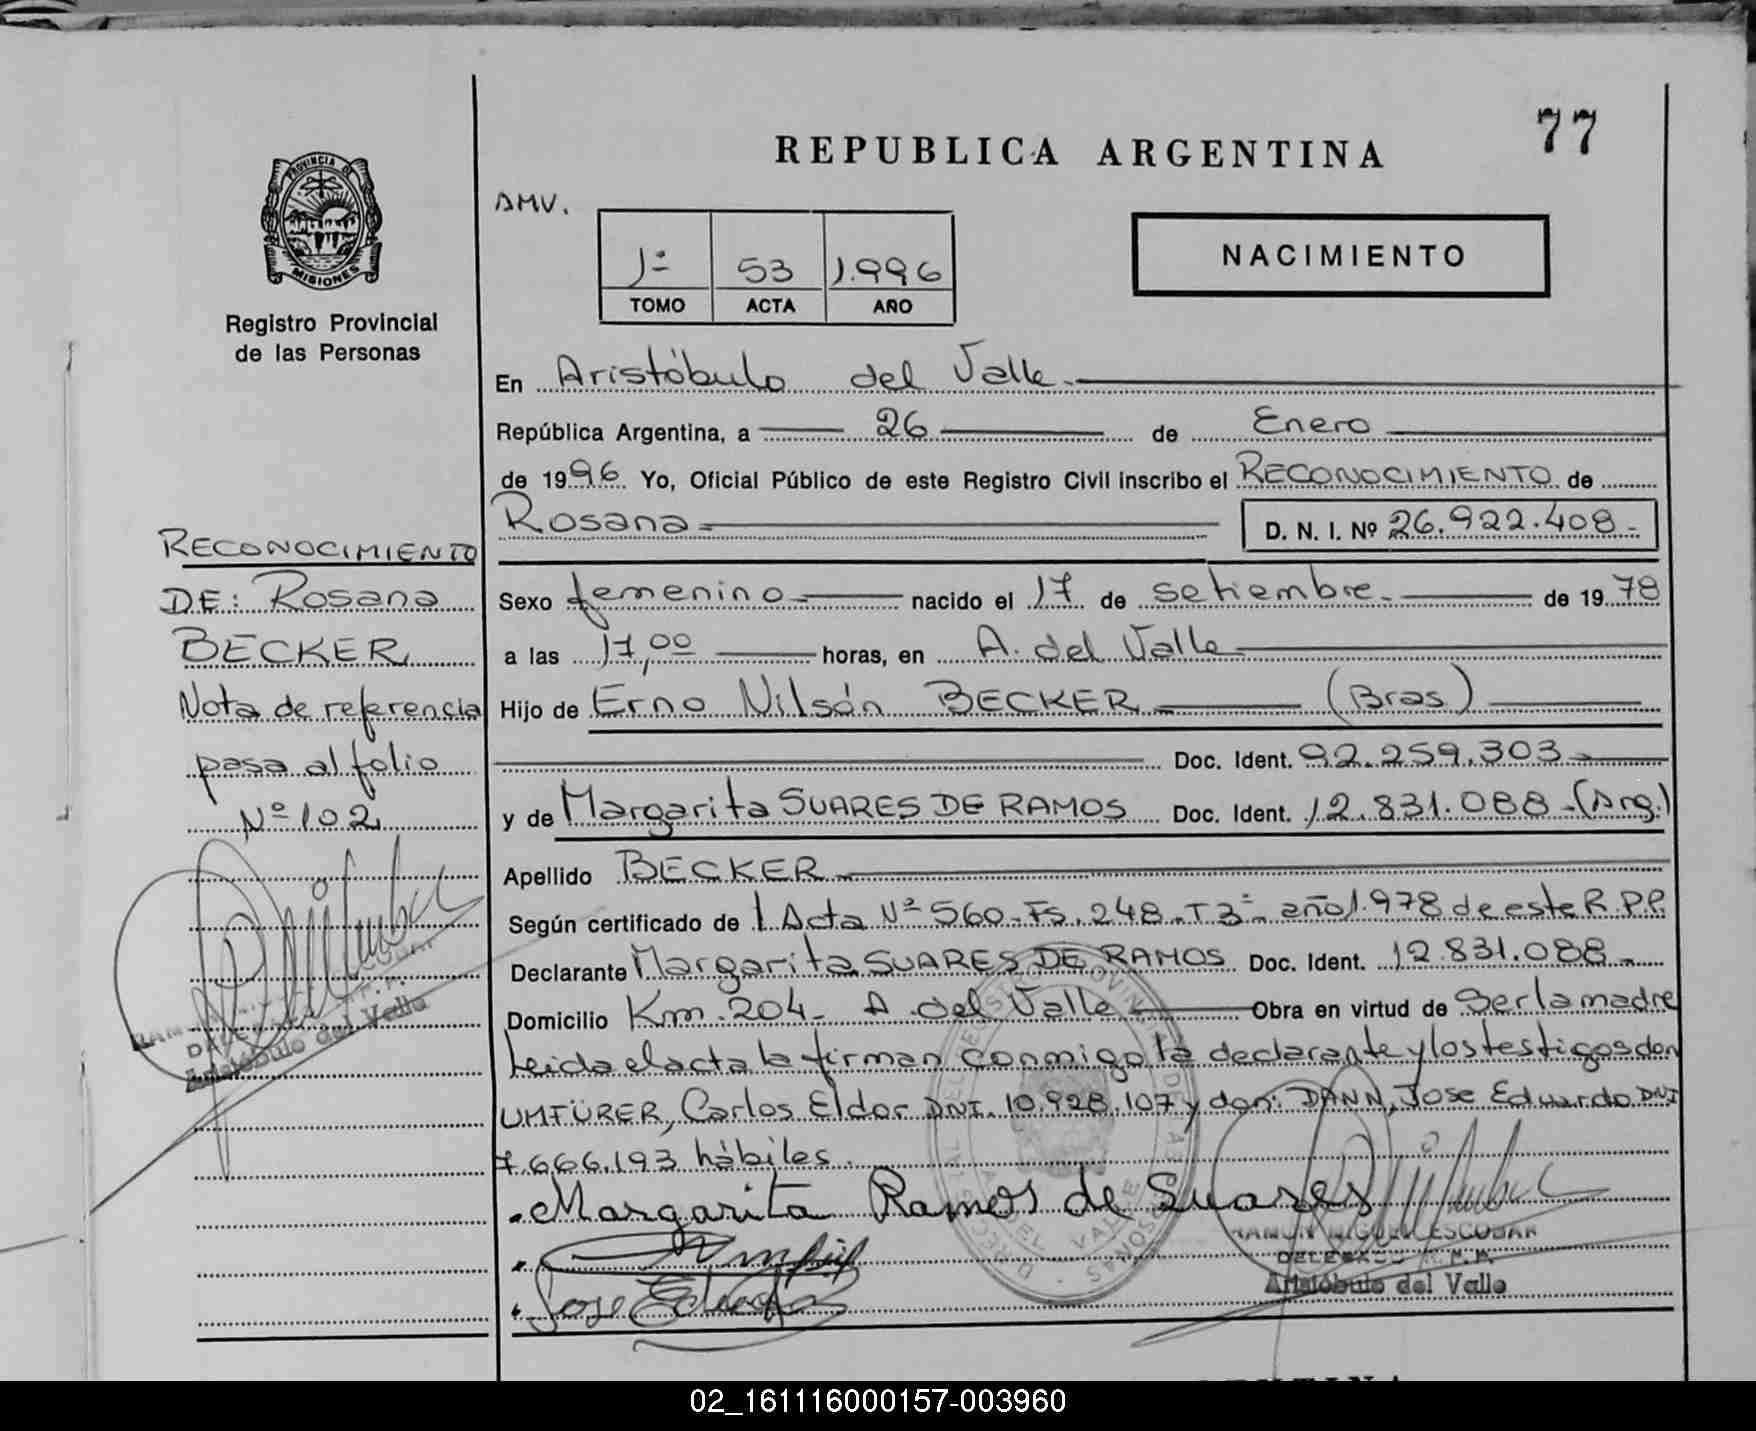 77
REPUBLICA ARGENTINA
PROVINCIA DE
MISIONES
Registro Provincial
de las Personas
AMV.
1º 53 1.996
TOMO ACTA AÑO
NACIMIENTO
En Aristóbulo del Valle.
República Argentina, a 26 de Enero
de 1996. Yo, Oficial Público de este Registro Civil inscribo el RECONOCIMIENTO de
Rosana D. N. I. Nº 26.922.408.-
Sexo femenino nacido el 17 de setiembre. de 1978
a las 17,00 horas, en A. del Valle
Hijo de Erno Nilsón BECKER (Bras)
Doc. Ident. 92.259.303
y de Margarita SUARES DE RAMOS Doc. Ident. 12.831.088-(Arg.)
Apellido BECKER
Según certificado de 1 Acta Nº 560-Fs.248-T3º- año 1.978 de este R.P.P.
Declarante Margarita SUARES DE RAMOS Doc. Ident. 12.831.088-
Domicilio Km.204- A.del Valle Obra en virtud de Ser la madre
Leida el acta la firman conmigo la declarante y los testigos don
UMFÜRER, Carlos Eldor DNI. 10.928.107 y don: DANN, Jose Eduardo DNI
7.666.193 hábiles.
Margarita Ramos de Suares
Jose
RAMON MIGUEL ESCOBAR
DELEGADO R.P.P.
Aristóbulo del Valle
RECONOCIMIENTO
DE: Rosana
BECKER
Nota de referencia
pasa al folio
Nº 102
Aristóbulo del Valle
02_161116000157-003960